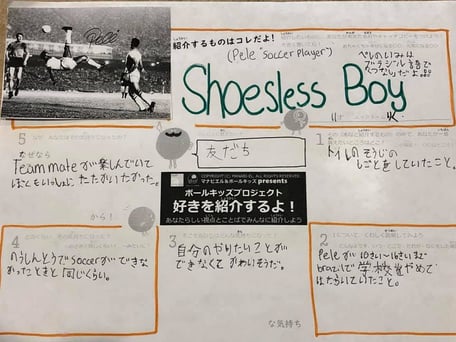 Pelé
紹介するものはコレだよ!
(Pele "Soccer Player")
ペレのいみは
ブラジル語で
くつなしだよ!!!
Shoesless Boy
5
なぜなら
Team mate が楽しんでいて
から!
友だち
COPYRIGHT (C) MANABI-EL, ALL RIGHTS RESERVED.
マナビエル&ポールキッズ presents
ポールキッズプロジェクト
好きを紹介するよ!
あなたらしい視点とことばでみんなに紹介しよう
1
トイレのそうじの
しごとをしていたこと。
4
のうしんとうでsoccerができな
かったときと同じくらい。
3
自分のやりたいことが
できなくてかわいそうだ。
な気持ち
2
Peleが10さい~16さいまで
brazilで学校をやめて
はたらいていたこと。